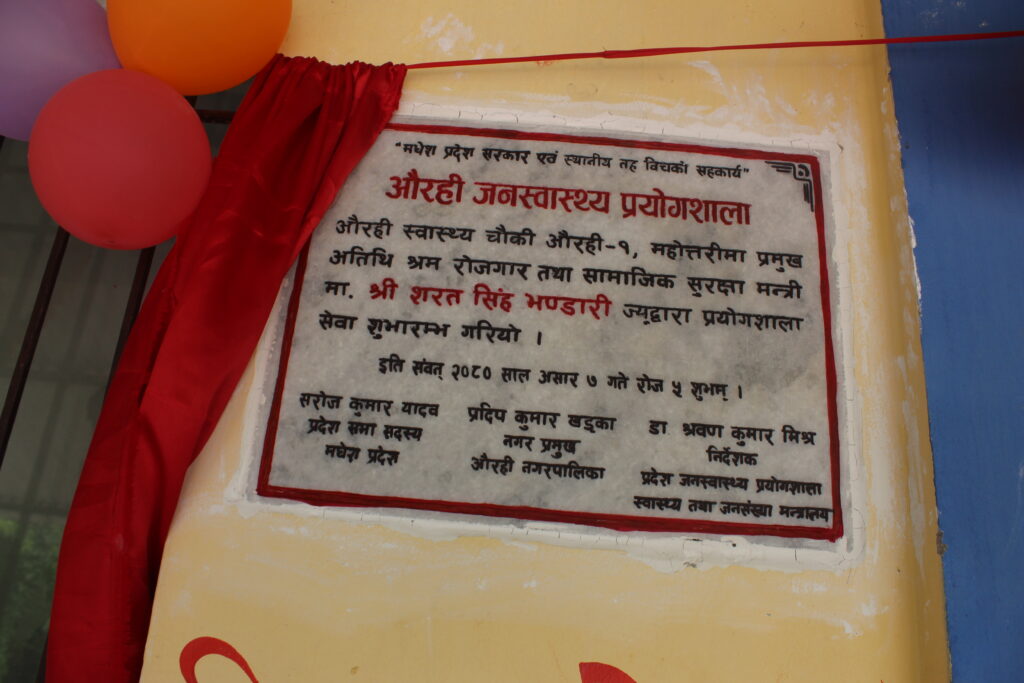 "मधेश प्रदेश सरकार एवं स्थानीय तह विचको सहकार्य"
औरही जनस्वास्थ्य प्रयोगशाला
औरही स्वास्थ्य चौकी औरही-१, महोत्तरीमा प्रमुख
अतिथि श्रम रोजगार तथा सामाजिक सुरक्षा मन्त्री
मा. श्री शरत सिंह भण्डारी ज्यूद्वारा प्रयोगशाला
सेवा शुभारम्भ गरियो ।
इति संवत् २०८० साल असार ७ गते रोज ५ शुभम् ।
सरोज कुमार यादव
प्रदेश सभा सदस्य
मधेश प्रदेश
प्रदिप कुमार खड्का
नगर प्रमुख
औरही नगरपालिका
डा श्रवण कुमार मिश्र
निर्देशक
प्रदेश जनस्वास्थ्य प्रयोगशाला
स्वास्थ्य तथा जनसंख्या मन्त्रालय